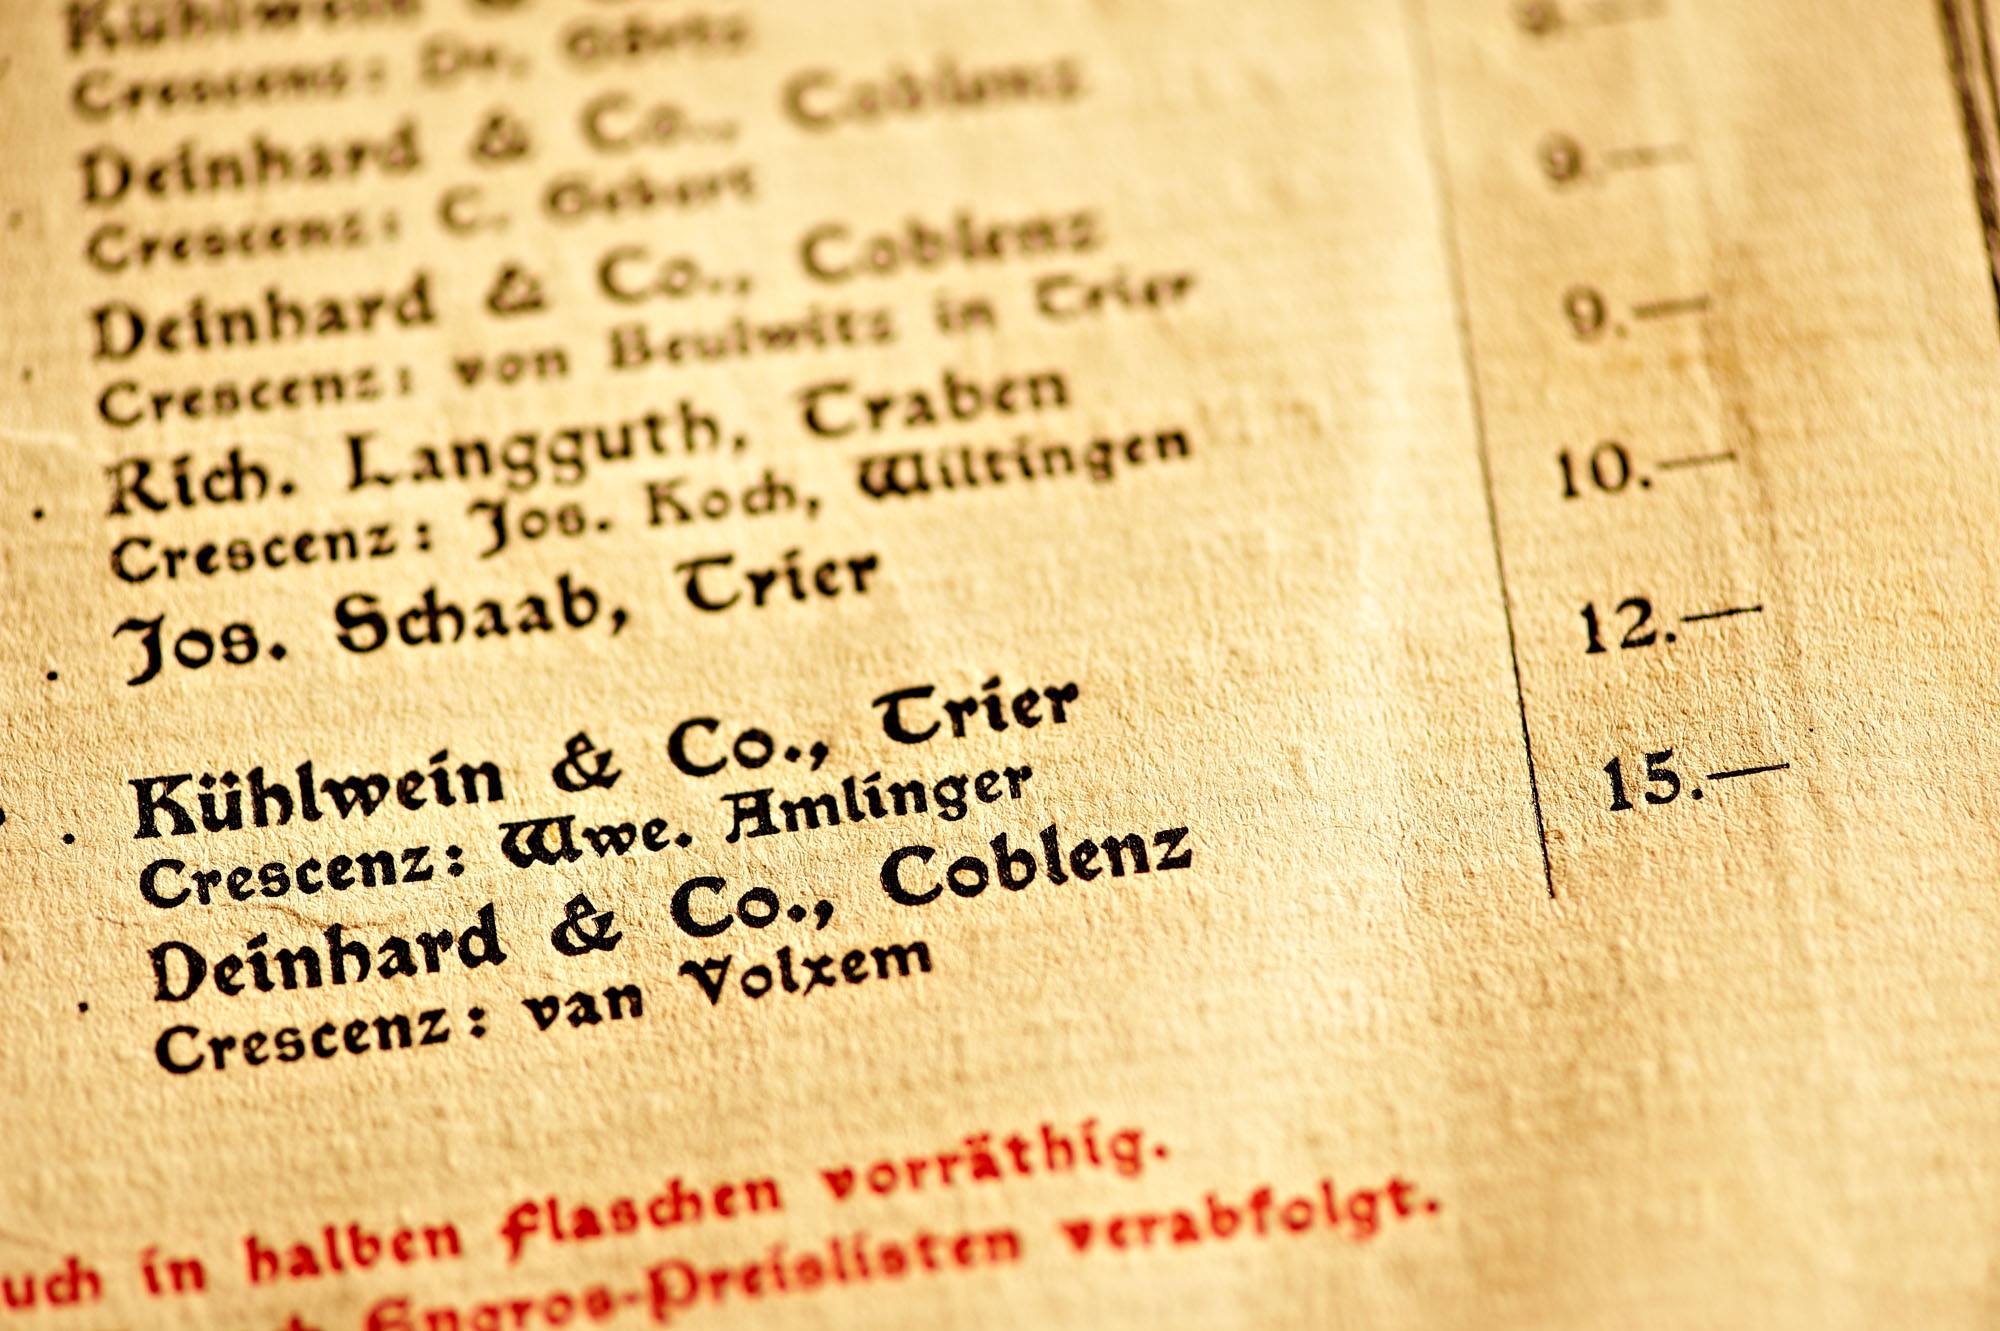 Kühlwein &
Crescenz: Dr. Görtz
8.—
Deinhard & Co., Coblenz
Crescenz: C. Gebert
9.—
Deinhard & Co., Coblenz
Crescenz: von Beulwitz in Trier
9.—
Rich. Langguth, Traben
Crescenz: Jos. Koch, Wiltingen
10.—
Jos. Schaab, Trier
12.—
Kühlwein & Co., Trier
Crescenz: Wwe. Amlinger
15.—
Deinhard & Co., Coblenz
Crescenz: van Volxem
uch in halben Flaschen vorräthig.
Engros-Preislisten verabfolgt.